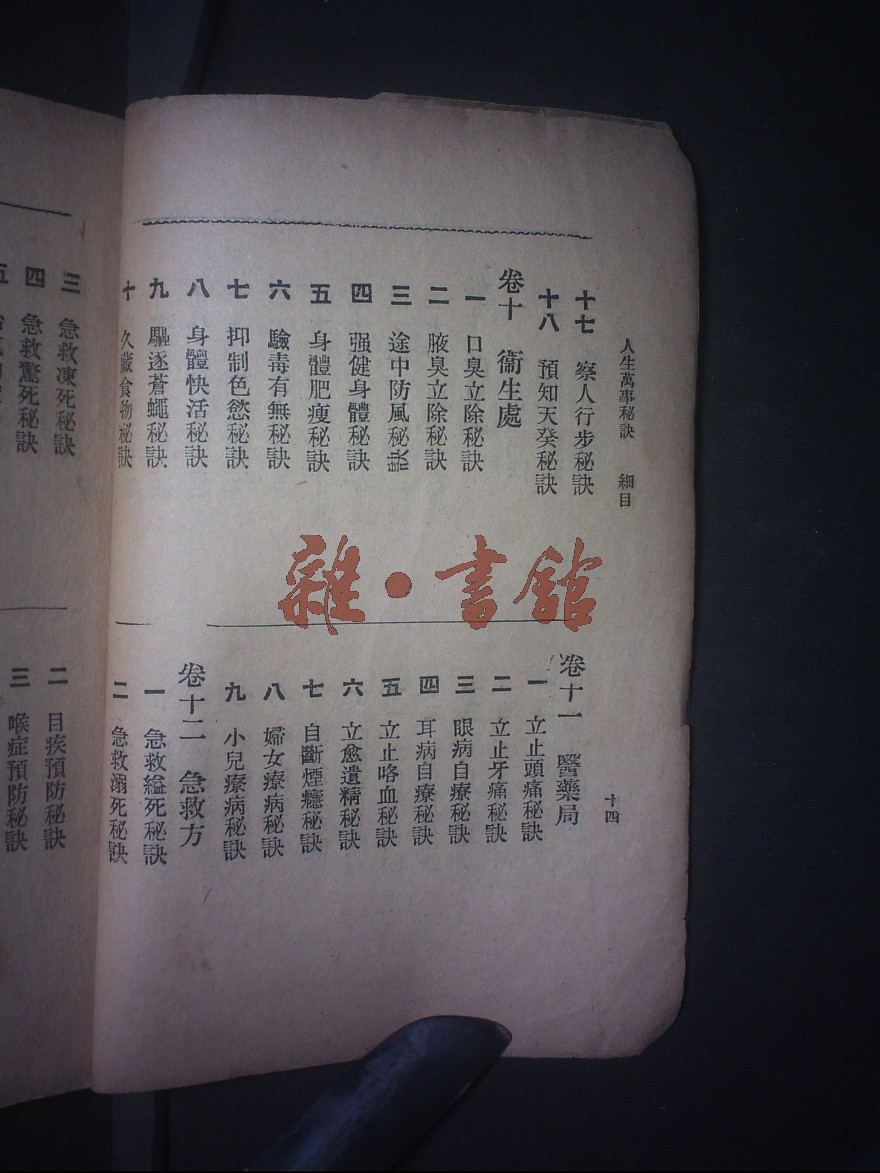 人生萬事秘訣　細目
十四
十七　察人行步秘訣
十八　預知天癸秘訣
卷十　衞生處
一　口臭立除秘訣
二　腋臭立除秘訣
三　途中防風秘訣
四　强健身體秘訣
五　身體肥瘦秘訣
六　驗毒有無秘訣
七　抑制色慾秘訣
八　身體快活秘訣
九　驅逐蒼蠅秘訣
十　久藏食物秘訣
卷十一　醫藥局
一　立止頭痛秘訣
二　立止牙痛秘訣
三　眼病自療秘訣
四　耳病自療秘訣
五　立止咯血秘訣
六　立愈遺精秘訣
七　自斷煙癮秘訣
八　婦女療病秘訣
九　小兒療病秘訣
卷十二　急救方
一　急救縊死秘訣
二　急救溺死秘訣
三　急救凍死秘訣
四　急救驚死秘訣
五
二　目疾預防秘訣
三　喉症預防秘訣
雜·書館